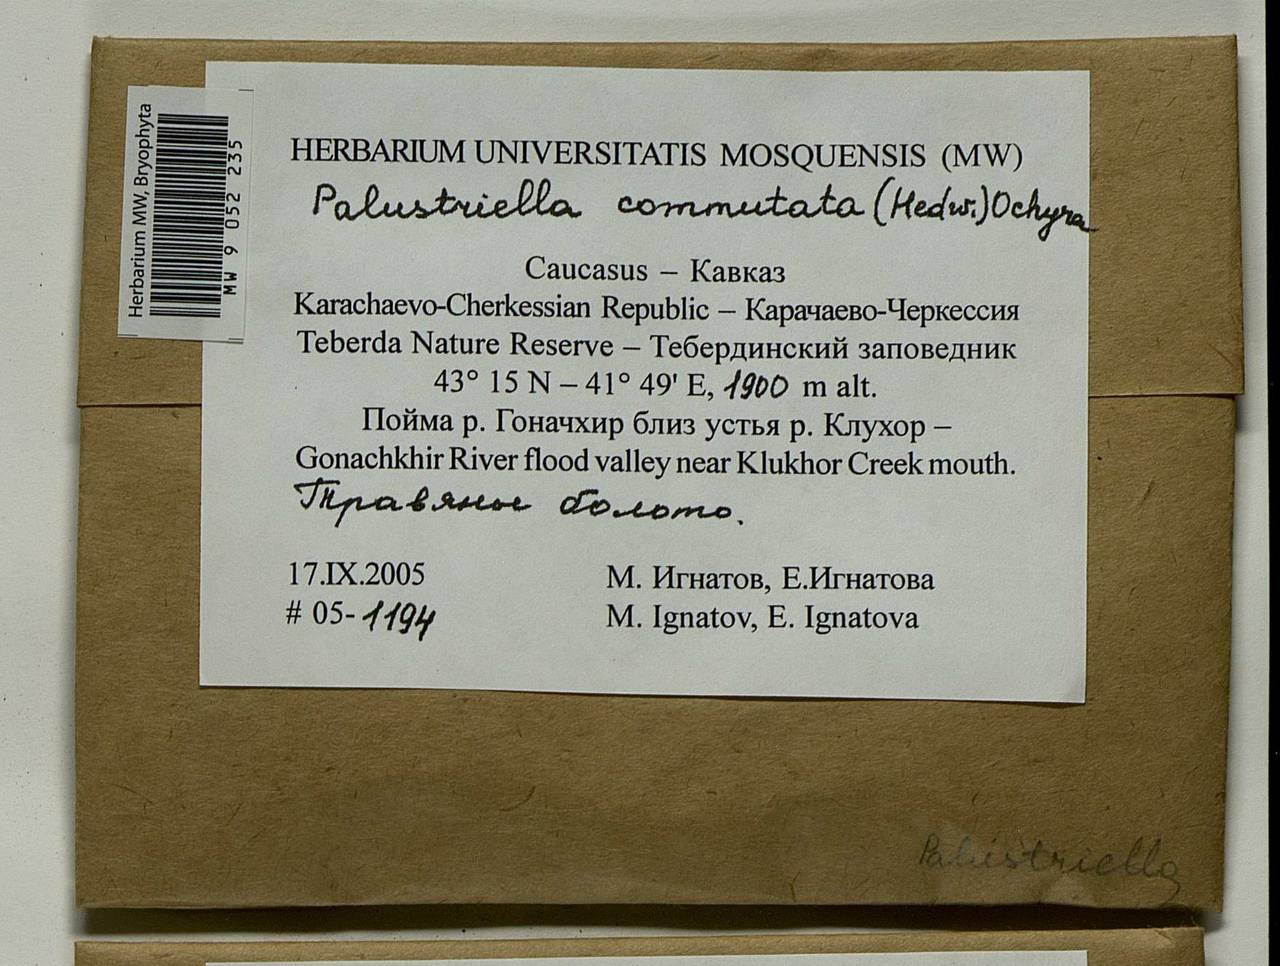 Herbarium MW, Bryophyta
MW 9 052 235
HERBARIUM UNIVERSITATIS MOSQUENSIS (MW)
Palustriella commutata (Hedw.) Ochyra
Caucasus – Кавказ
Karachaevo-Cherkessian Republic – Карачаево-Черкессия
Teberda Nature Reserve – Тебердинский заповедник
43° 15 N – 41° 49' E, 1900 m alt.
Пойма р. Гоначхир близ устья р. Клухор –
Gonachkhir River flood valley near Klukhor Creek mouth.
Травяное болото.
17.IX.2005
М. Игнатов, Е.Игнатова
# 05-1194
M. Ignatov, E. Ignatova
Palustriella